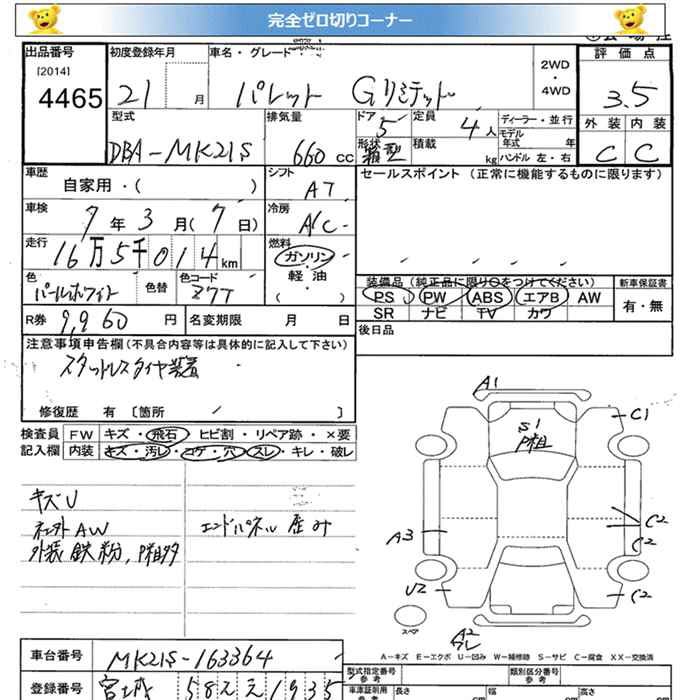 完全ゼロ切りコーナー
出品番号 初度登録年月 車名・グレード 2WD・4WD 評価点
[2014]
4465 21 月 パレット Gリミテッド 3.5
型式 排気量 ドア 5 定員 4人 ディーラー・並行 外装 内装
DBA-MK21S 660 cc 形状 箱型 積載 kg モデル年式 年 ハンドル 左・右 C C
車歴 シフト セールスポイント (正常に機能するものに限ります)
自家用・( ) AT
車検 冷房
7年3月(7日) A/C
走行 燃料
16万5千014km ガソリン
色 色替 色コード 軽油
パールホワイト Z7T ( ・ )
装備品(純正品に限り○をつけてください) 新車保証書
PS PW ABS エアB AW 有・無
SR ナビ TV カワ
R券 9,960 円 名変期限 月 日 後日品
注意事項申告欄(不具合内容等は具体的に記入して下さい)
スタットレスタイヤ装着
修復歴 有 〔箇所 〕
検査員 FW キズ・飛石・ヒビ割・リペア跡・×要
記入欄 内装 キズ・汚レ・コゲ・穴・スレ・キレ・破レ
キズU
ネジ外AW エンドパネル歪み
外装鉄粉,P粗多
A1
C1
S1
P粗
A3
C2
C2
U2
C2
スペア
A2
A-キズ E-エクボ U-凹み W-補修跡 S-サビ C-腐食 XX-交換済
車台番号 MK21S-163364
型式指定番号 参考 類別区分番号 参考
登録番号 宮城 582 え 1935
車庫証明用 参考 長さ cm 幅 cm 高さ cm